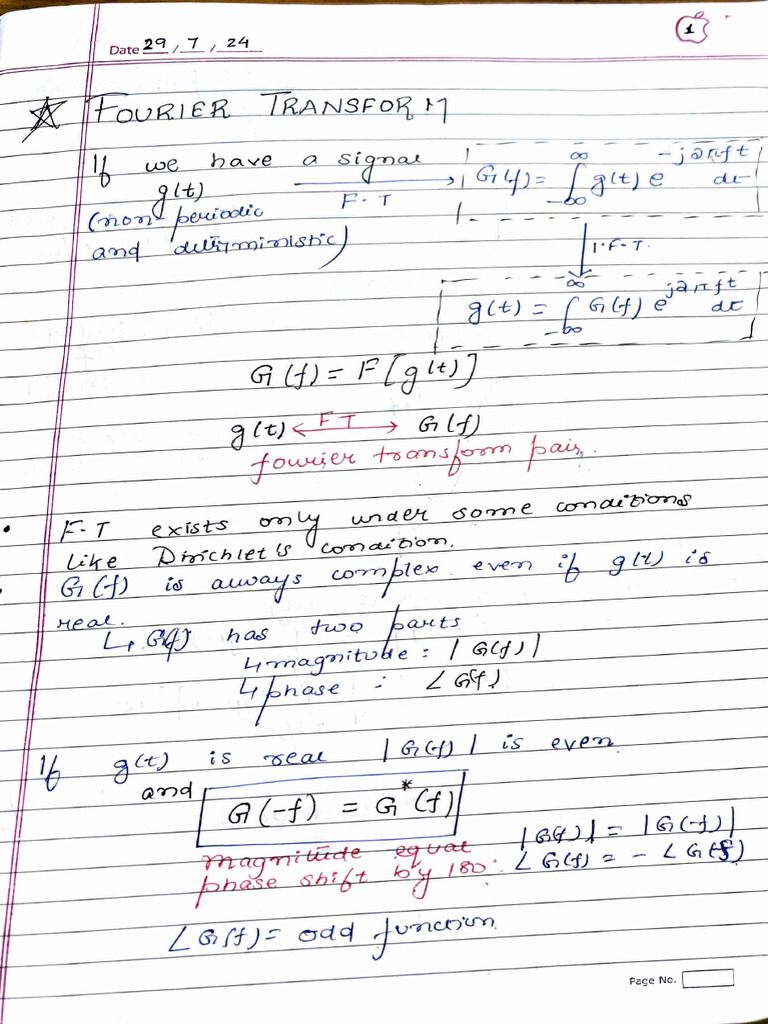 1
Date 29, 7, 24
☆ FOURIER TRANSFORM
If we have a signal
g(t) F.T G(f) = ∫_{-∞}^{∞} g(t) e^{-j2πft} dt
(non-periodic
and deterministic)
I.F.T.
g(t) = ∫_{-∞}^{∞} G(f) e^{j2πft} dt
G(f) = F[g(t)]
g(t) ←FT→ G(f)
fourier transform pair.
• F.T exists only under some conditions
like Dirichlet's condition.
• G(f) is always complex even if g(t) is
real.
↳ G(f) has two parts
↳ magnitude : |G(f)|
↳ phase : ∠G(f)
If g(t) is real |G(f)| is even.
and
G(-f) = G*(f)
magnitude equal
phase shift by 180°
|G(f)| = |G(-f)|
∠G(f) = -∠G(f)
∠G(f) = odd function.
Page No.